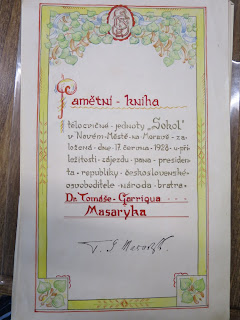 Pamětní - kniha
tělocvičné - jednoty „Sokol"
v Novém - Městě - na - Moravě - za-
ložená - dne - 17. června - 1928 - u - pří-
ležitosti - zájezdu - pana - presiden-
ta - republiky - československé -
osvoboditele - národa - bratra -
Dr. Tomáše - Garrigua
Masaryka
T. G. Masaryk